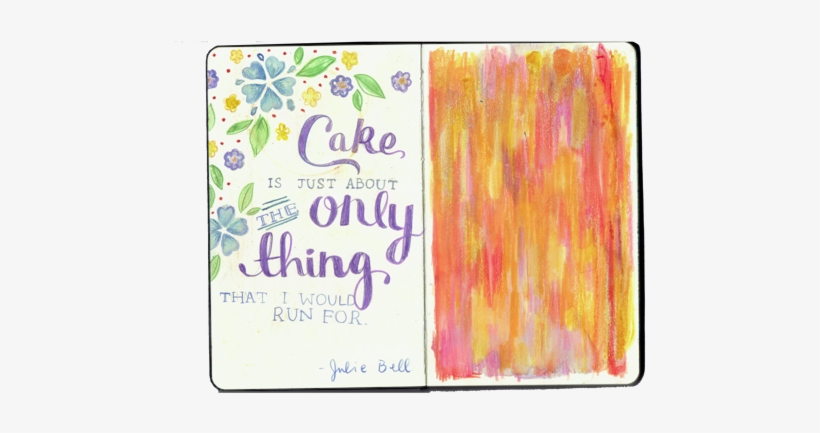 Cake
IS JUST ABOUT
THE only
thing
THAT I WOULD
RUN FOR.
- Julie Bell